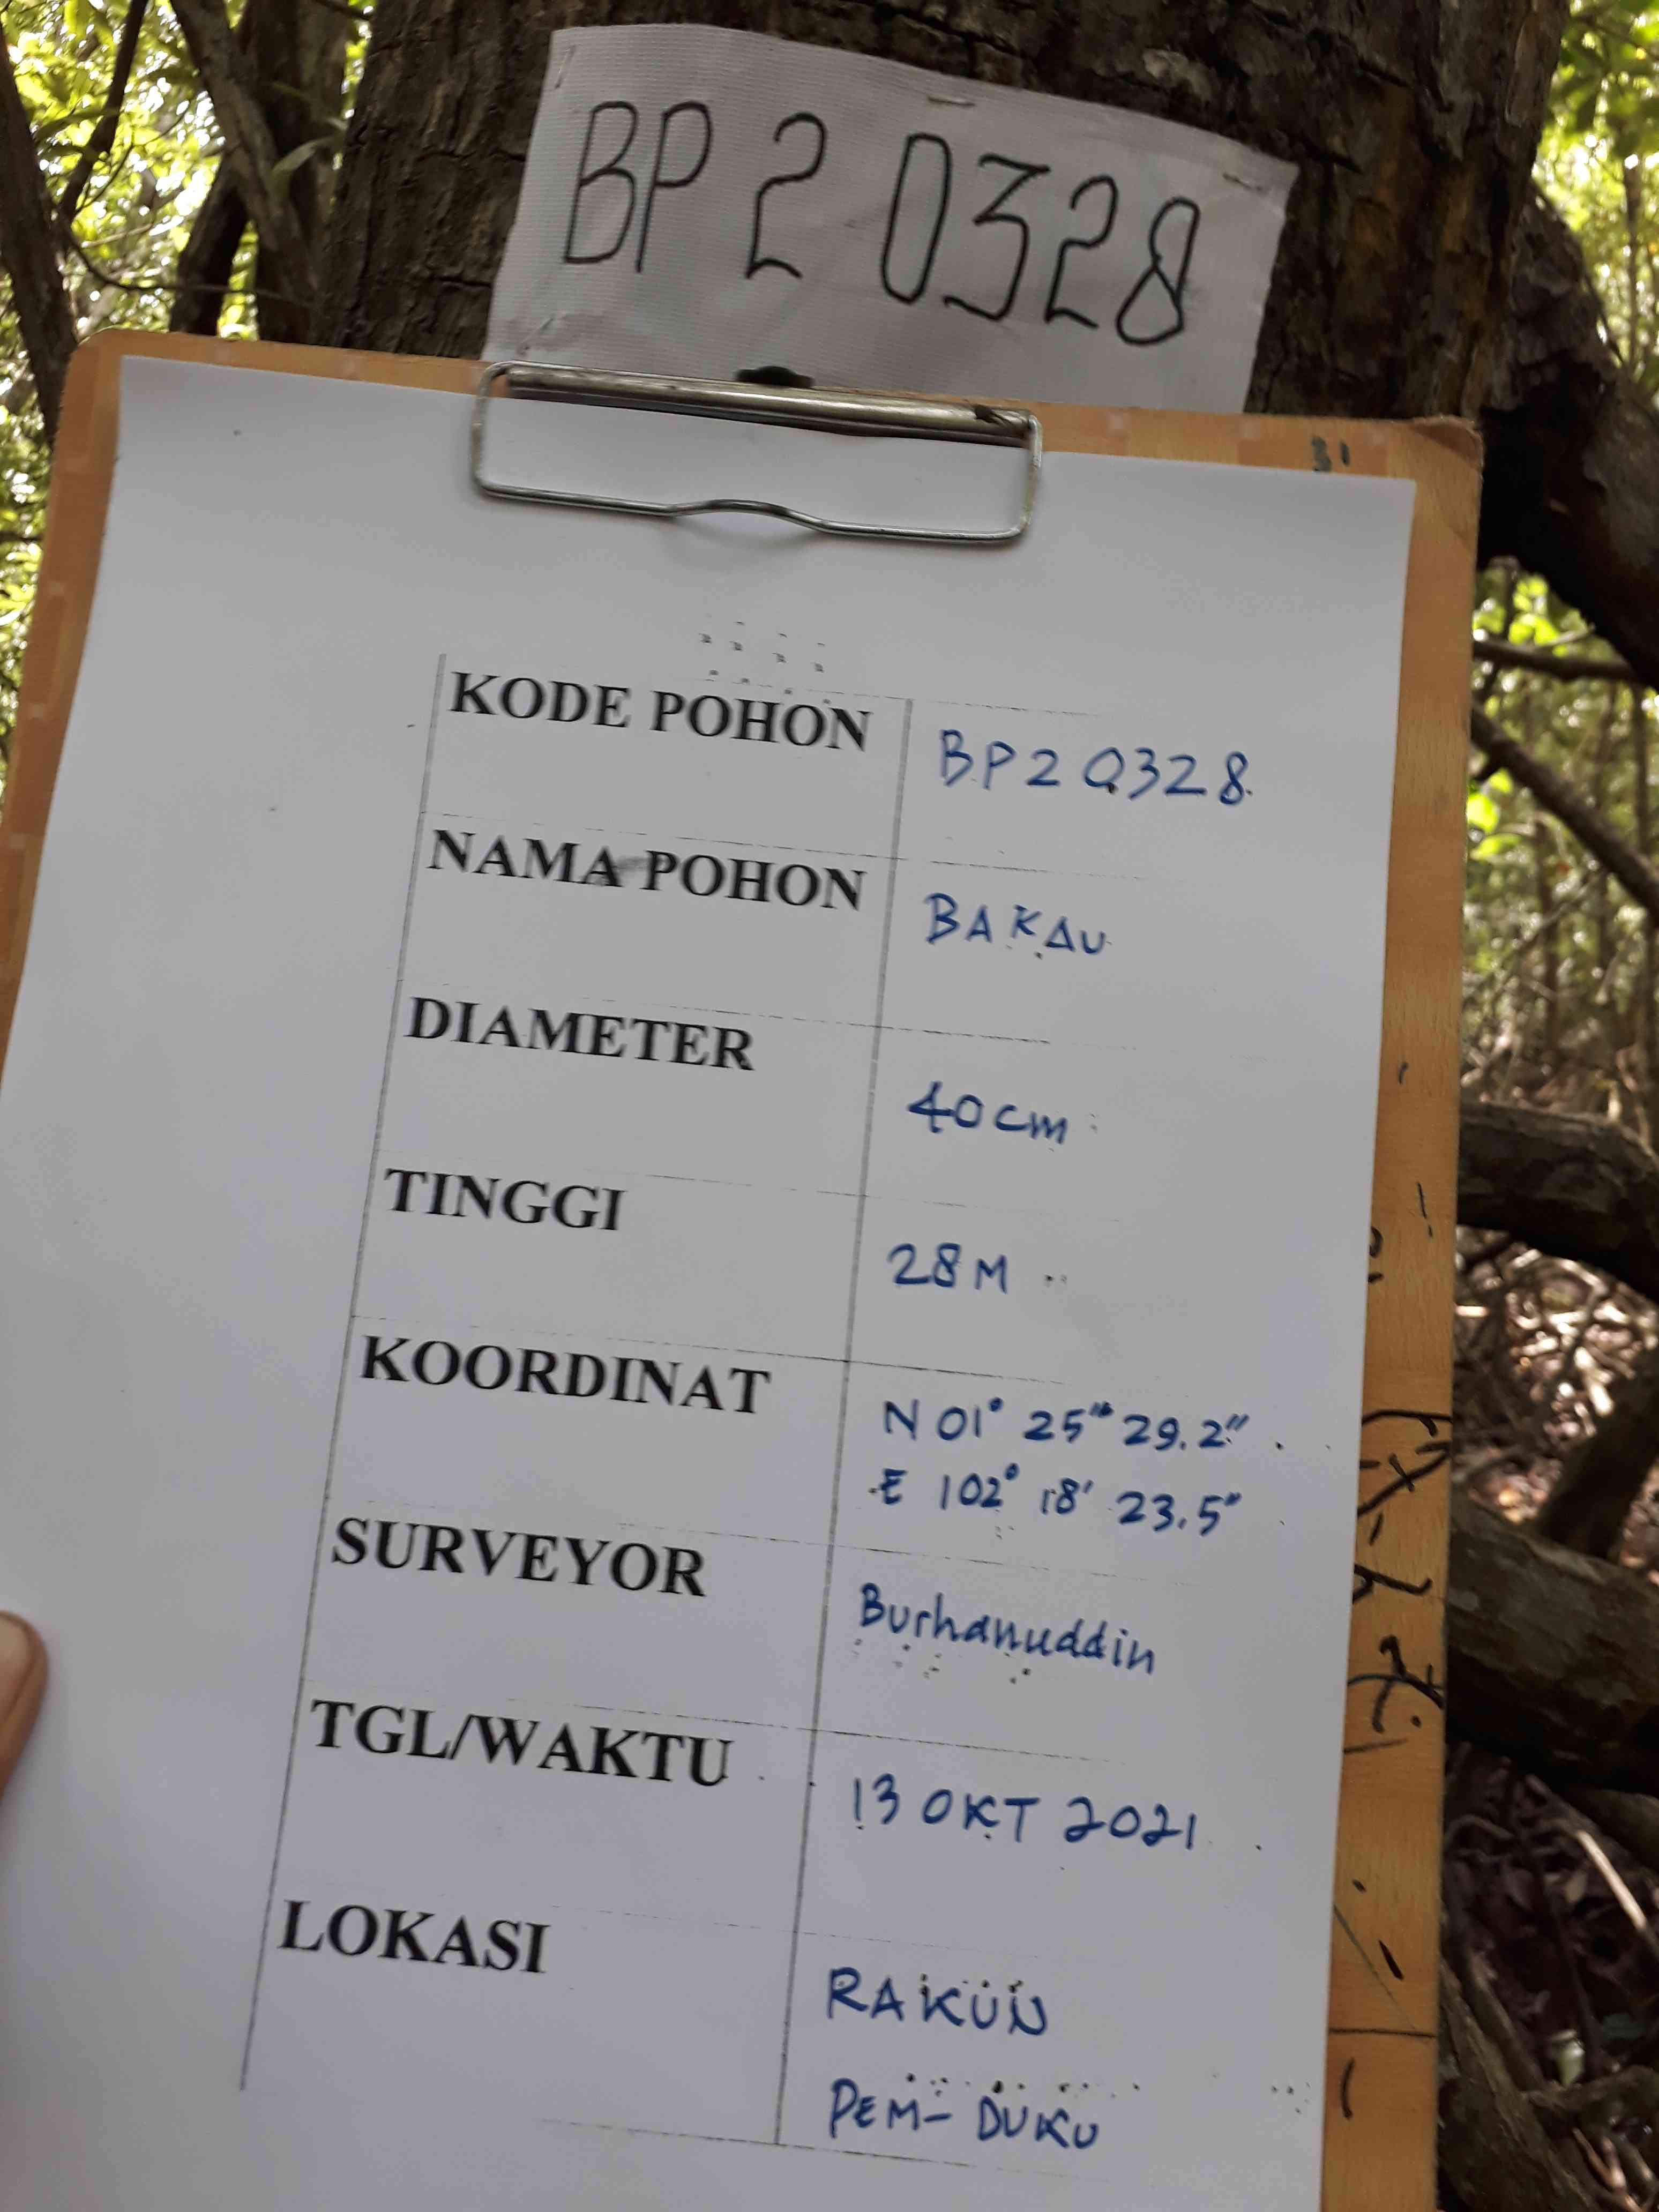 BP 2 0328
KODE POHON
BP2 0328
NAMA POHON
BAKAU
DIAMETER
40 cm
TINGGI
28 M
KOORDINAT
N 01° 25" 29.2"
E 102° 18' 23.5"
SURVEYOR
Burhanuddin
TGL/WAKTU
13 OKT 2021
LOKASI
RAKUN
PEM- DUKU